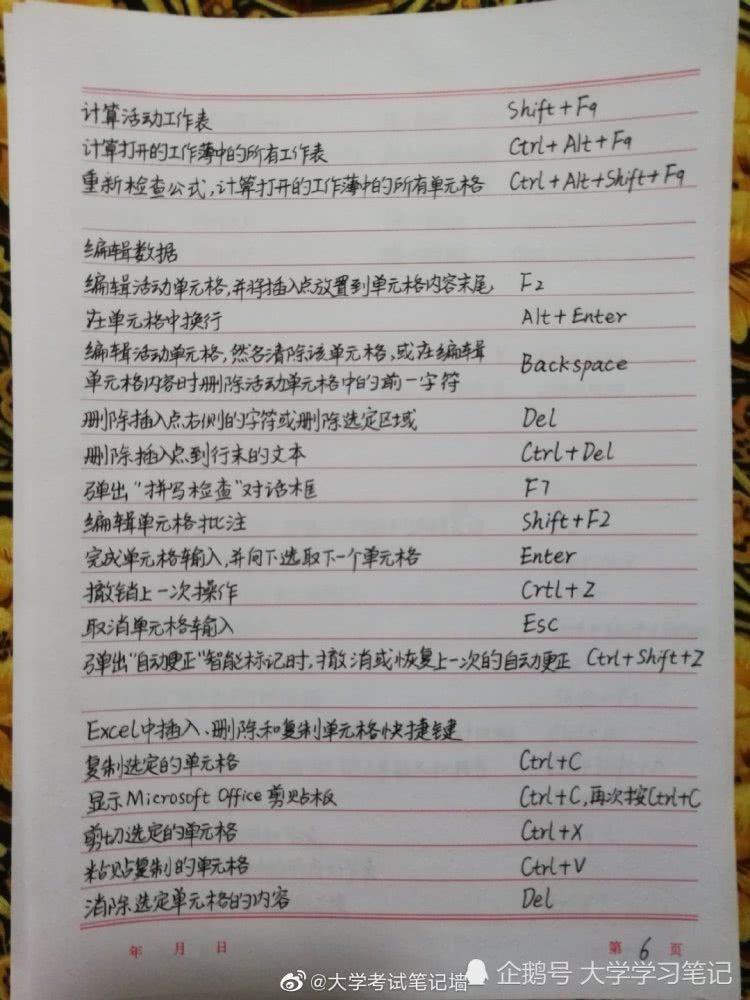 计算活动工作表 Shift+F9
计算打开的工作薄中的所有工作表 Ctrl+Alt+F9
重新检查公式,计算打开的工作薄中的所有单元格 Ctrl+Alt+Shift+F9
编辑数据
编辑活动单元格,并将插入点放置到单元格内容末尾 F2
在单元格中换行 Alt+Enter
编辑活动单元格,然名清除该单元格,或在编辑
单元格内容时删除活动单元格中的前一字符 Backspace
删除插入点右侧的字符或删除选定区域 Del
删除插入点到行末的文本 Ctrl+Del
弹出"拼写检查"对话框 F7
编辑单元格批注 Shift+F2
完成单元格输入,并向下选取下一个单元格 Enter
撤销上一次操作 Crtl+Z
取消单元格输入 Esc
弹出"自动更正"智能标记时,撤消或恢复上一次的自动更正 Ctrl+Shift+Z
Excel中插入、删除和复制单元格快捷键
复制选定的单元格 Ctrl+C
显示Microsoft Office剪贴板 Ctrl+C,再次按Ctrl+C
剪切选定的单元格 Ctrl+X
粘贴复制的单元格 Ctrl+V
消除选定单元格的内容 Del
年 月 日 第 6 页
@大学考试笔记墙 企鹅号 大学学习笔记